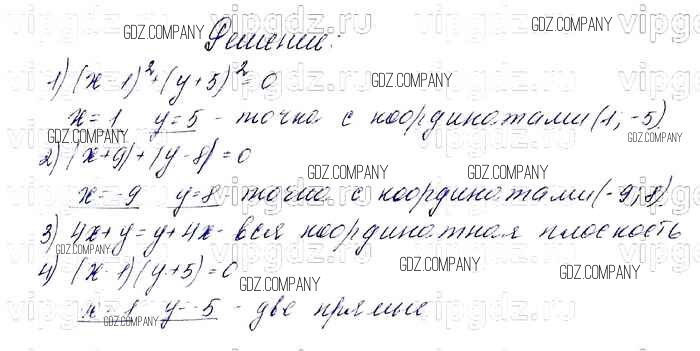 GDZ.COMPANY
Решение:
1) (x-1)²+(y+5)²=0
GDZ.COMPANY
x=1 y=5 - точка с координатами (1; -5)
GDZ.COMPANY
2) |x+9|+|y-8|=0
GDZ.COMPANY GDZ.COMPANY
x=-9 y=8 точка с координатами (-9; 8)
3) 4x+y=y+4x - вся координатная плоскость
GDZ.COMPANY
4) (x-1)(y+5)=0
GDZ.COMPANY GDZ.COMPANY GDZ.COMPANY
x=1 y=-5 - две прямые
GDZ.COMPANY
vipgdz.ru